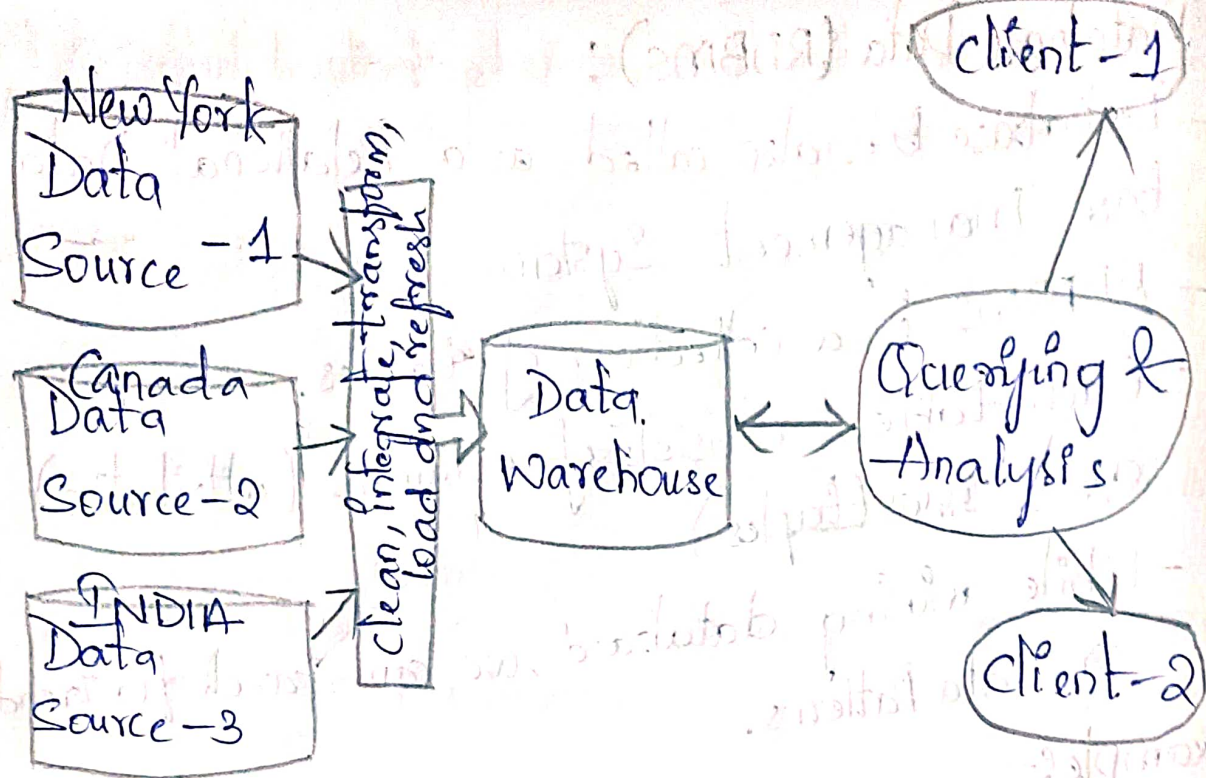 New York
Data
Source -1
Canada
Data
Source-2
INDIA
Data
Source-3
Clean, integrate, transform,
load and refresh
Data
Warehouse
Querying &
Analysis
Client-1
Client-2